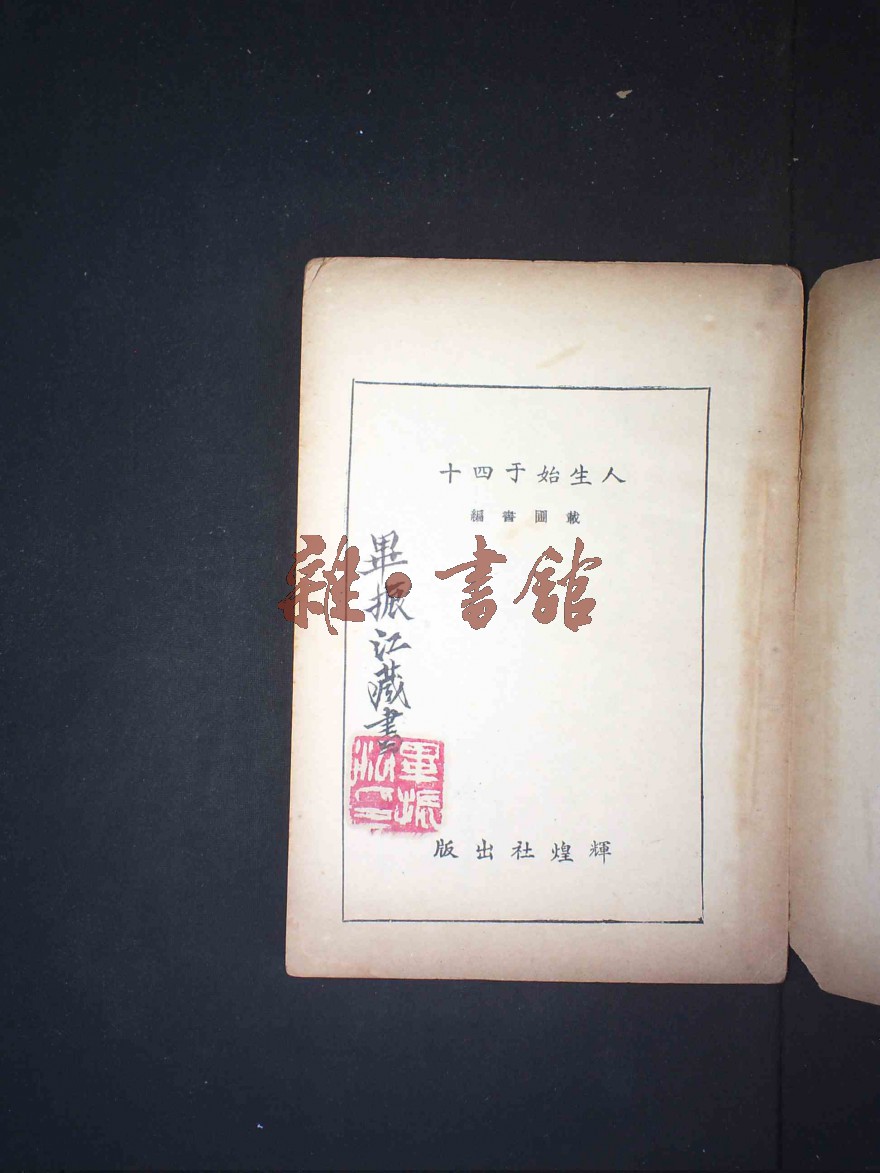 人生始于四十
圃書編
畢振江藏書
雜·書館
畢振
輝煌社出版